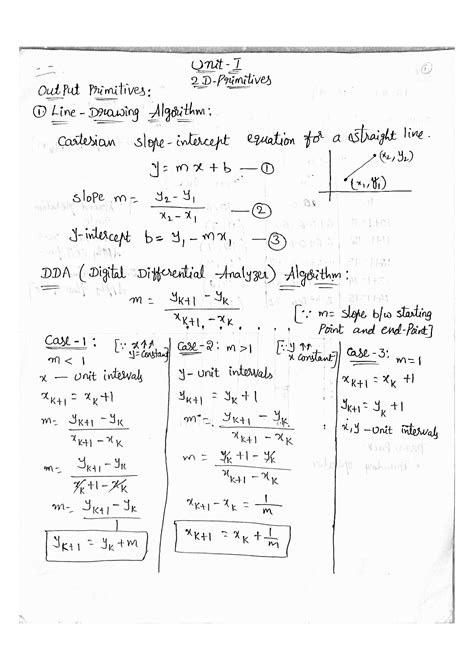 Unit-I
①
2D-Primitives
Output Primitives:
① Line-Drawing Algorithm:
Cartesian slope-intercept equation for a straight line.
y = mx + b — ①
(x₂, y₂)
(x₁, y₁)
slope m = (y₂ - y₁) / (x₂ - x₁) — ②
y-intercept b = y₁ - mx₁ — ③
DDA (Digital Differential Analyzer) Algorithm:
m = (yK+1 - yK) / (xK+1 - xK)
[∵ m = Slope b/w starting
Point and end-Point]
Case-1: [∵ x↑↑
m < 1 y=constant]
x — unit intervals
xK+1 = xK + 1
m = (yK+1 - yK) / (xK+1 - xK)
m = (yK+1 - yK) / (xK + 1 - xK)
m = (yK+1 - yK) / 1
yK+1 = yK + m
Case-2: m>1 [∵ y ↑↑
x constant]
y- unit intervals
yK+1 = yK + 1
m = (yK+1 - yK) / (xK+1 - xK)
m = (yK + 1 - yK) / (xK+1 - xK)
xK+1 - xK = 1/m
xK+1 = xK + 1/m
Case-3: m=1
xK+1 = xK + 1
yK+1 = yK + 1
x,y-unit intervals